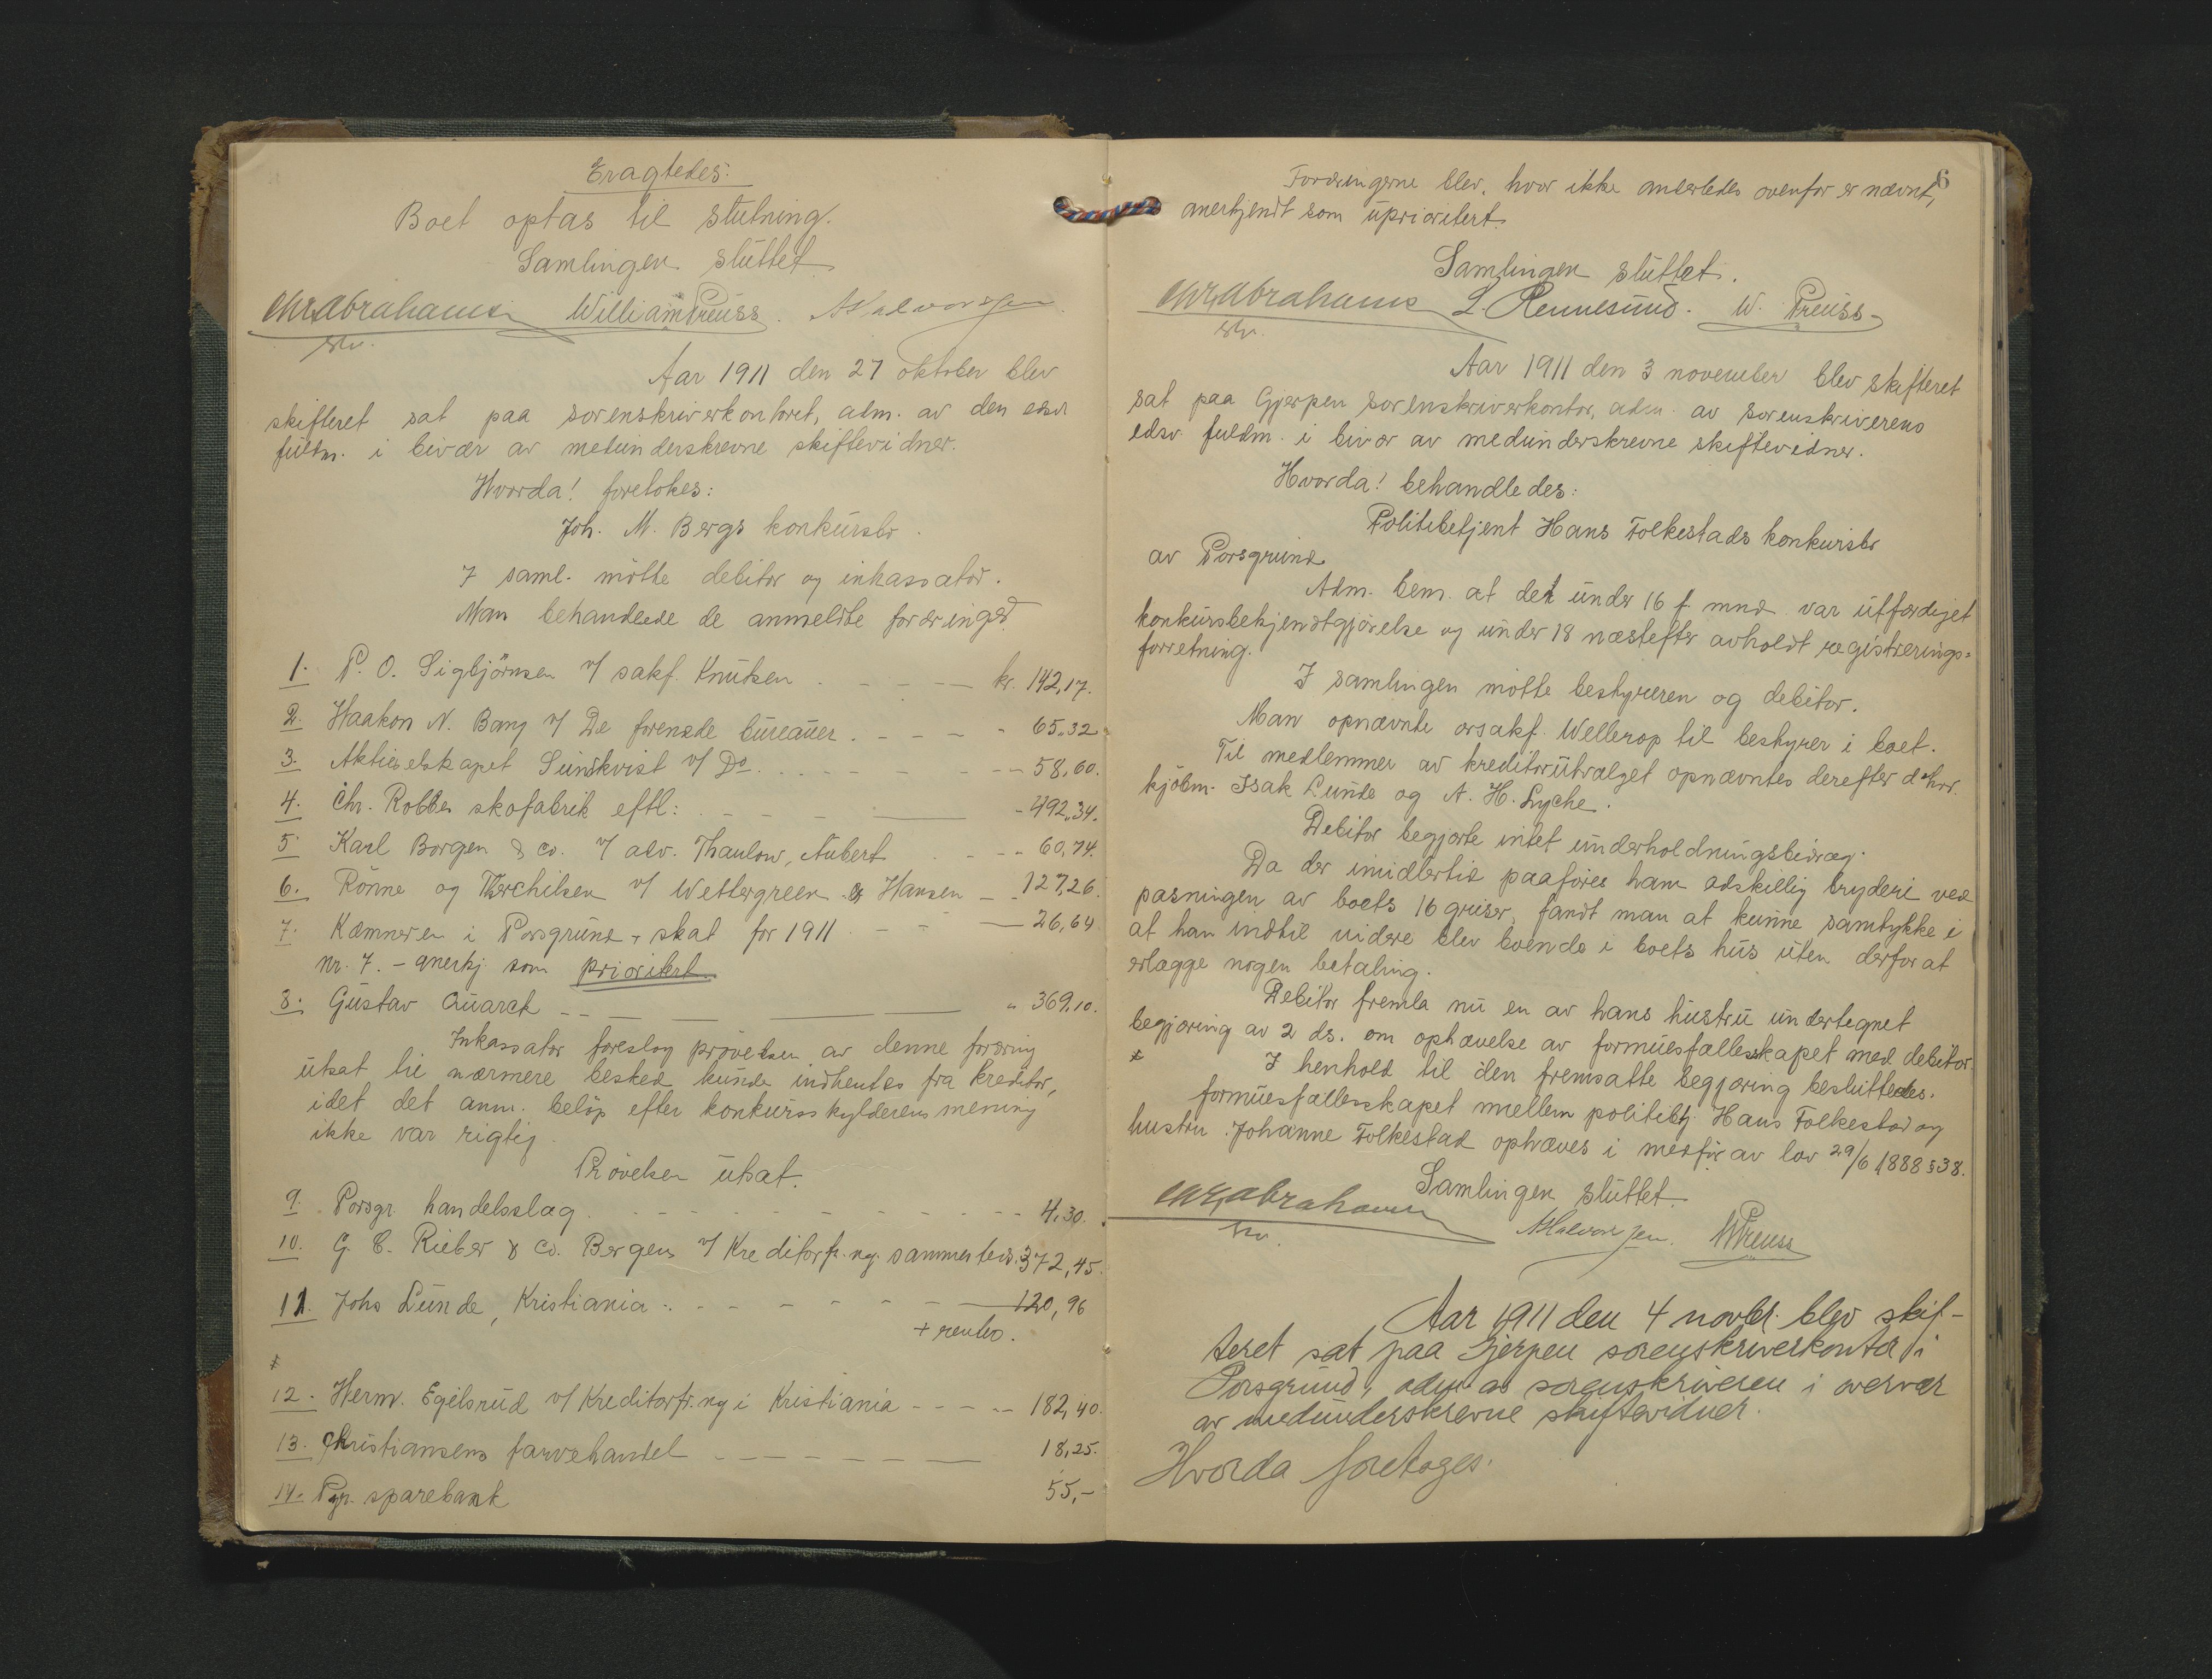 Eragtedes:
Boet optas til slutning.
Samlingen sluttet
Chr. Abrahamsen William Preuss. A Halvorsen
Aar 1911 den 27 oktober blev
skifteret sat paa sorenskriverkontoret, adm. av den edsv
fuldm. i bivær av medunderskrevne skiftevidner.
Hvorda! foretokes:
Joh. M. Bergs konkursbo.
I saml. mötte debitor og inkassator.
Man behandlede de anmeldte fordringer
1. P. O. Sigbjörnsen v/ sakf. Knutsen kr. 142,17.
2. Haakon N. Bang v/ De forenede bureauer - - - - " 65.32
3. Aktieselskapet Sundkvist v/ Do - - - - 58,60.
4. Chr. Robbes skofabrik eftf: - 492.34.
5. Karl Borgen & co. v/ adv. Thaulow, Aubert - - - 60,74.
6. Rönne og Therchilsen v/ Wettergreen & Hansen - 127,26.
7. Kæmneren i Porsgrund, skat for 1911 - - 26,64
Nr. 7. - anerkj som prioritert
8. Gustav Quarck " 369,10.
Inkassator foreslog prövelsen av denne fordring
utsat til nærmere besked kunde indhentes fra kreditor,
idet det anm. belöp efter konkursskylderens mening
ikke var rigtig.
Prövelsen utsat.
9. Porsgr. handelslag - - - - - - 4,30.
10. G. C. Rieber & co. Bergen v/ Kreditorfr.ng. sammesteds. 372,45.
11. Johs Lunde, Kristiania - - - - - 120,96
+ renter.
12. Herm. Egilsrud v/ Kreditorfr.ng i Kristiania - - - - 182,40.
13. Christiansens farvehandel - - - - - 18,25.
14. Pgr. sparebank 55,-
6
Fordringerne blev, hvor ikke anderledes ovenfor er nævnt,
anerkjendt som uprioritert.
Samlingen sluttet.
Chr. Abrahamsen L. Rennesund. W. Preuss
Aar 1911 den 3 november blev skifteret
sat paa Gjerpen sorenskriverkontor, adm. av sorenskriverens
edsv. fuldm. i bivær av medunderskrevne skiftevidner.
Hvorda! behandledes:
Politibetjent Hans Folkestads konkursbo
av Porsgrund.
Adm. bem. at det under 16 f. mnd var utfærdiget
konkursbekjendtgjörelse og under 18 næstefter avholdt registrerings-
forretning.
I samlingen mötte bestyreren og debitor.
Man opnævnte orsakf. Wellerop til bestyrer i boet.
Til medlemmer av kreditorutvalget opnævntes derefter d'hrr.
kjöbm. Isak Lunde og A. H. Lyche.
Debitor begjærte intet underholdningsbidrag.
Da der imidlertid paaföres ham adskillig bryderi ved
pasningen av boets 16 griser, fandt man at kunne samtykke i
at han indtil videre blev boende i boets hus uten derfor at
erlægge nogen betaling.
Debitor fremla nu en av hans hustru undertegnet
begjæring av 2 ds. om ophævelse av formuesfællesskapet med debitor.
I henhold til den fremsatte begjæring besluttedes.
formuesfællesskapet mellem politibtj. Hans Folkestad og
hustru Johanne Folkestad ophæves i medför av lov 29/6 1888 § 38.
Samlingen sluttet.
Chr. Abrahamsen A Halvorsen. W Preuss
Aar 1911 den 4 novbr. blev skif-
teret sat paa Gjerpen sorenskriverkontor i
Porsgrund, adm av sorenskriveren i overvær
av medunderskrevne skiftevidner.
Hvorda foretoges: